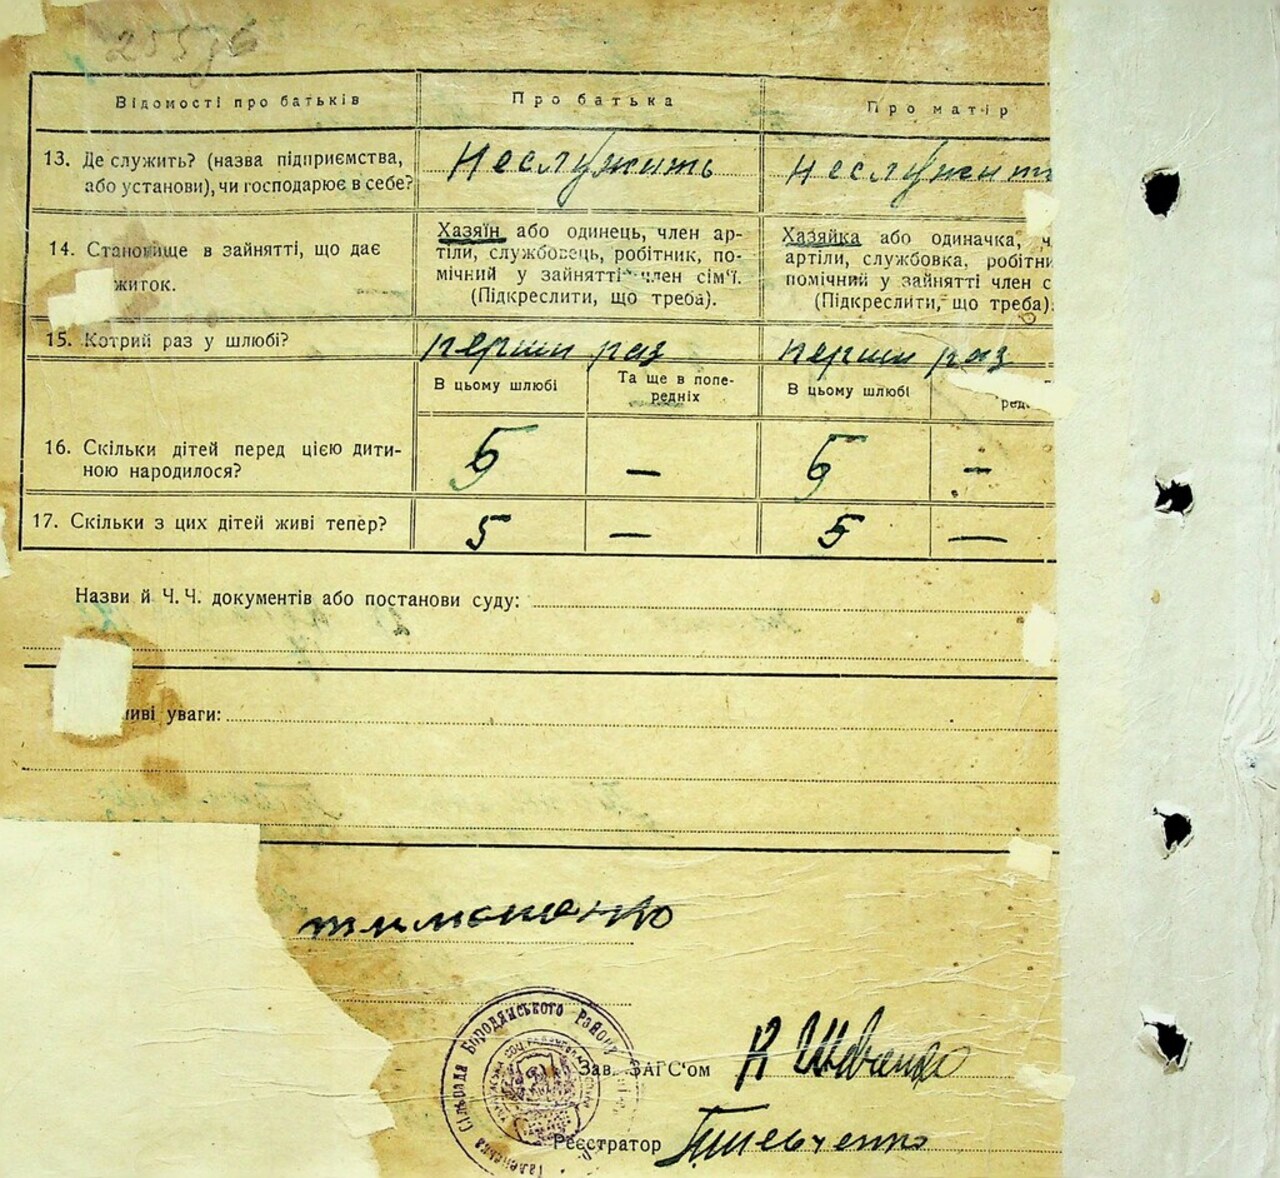 25536
Відомості про батьків
Про батька
Про матір
13. Де служить? (назва підприємства,
або установи), чи господарює в себе?
Неслужить
Неслужить
14. Становище в зайнятті, що дає
житок.
Хазяїн або одинець, член ар-
тіли, службовець, робітник, по-
мічний у зайнятті член сім'ї.
(Підкреслити, що треба).
Хазяйка або одиначка, ч
артіли, службовка, робітни
помічний у зайнятті член с
(Підкреслити, що треба).
15. Котрий раз у шлюбі?
перши раз
перши раз
В цьому шлюбі
Та ще в попе-
редніх
В цьому шлюбі
ред
16. Скільки дітей перед цією дити-
ною народилося?
5
—
5
—
17. Скільки з цих дітей живі тепер?
5
—
5
—
Назви й Ч. Ч. документів або постанови суду:
иві уваги:
тимошенко
Сільрада Бородянського Району
Зав. ЗАГС'ом
Реєстратор
Шевченко